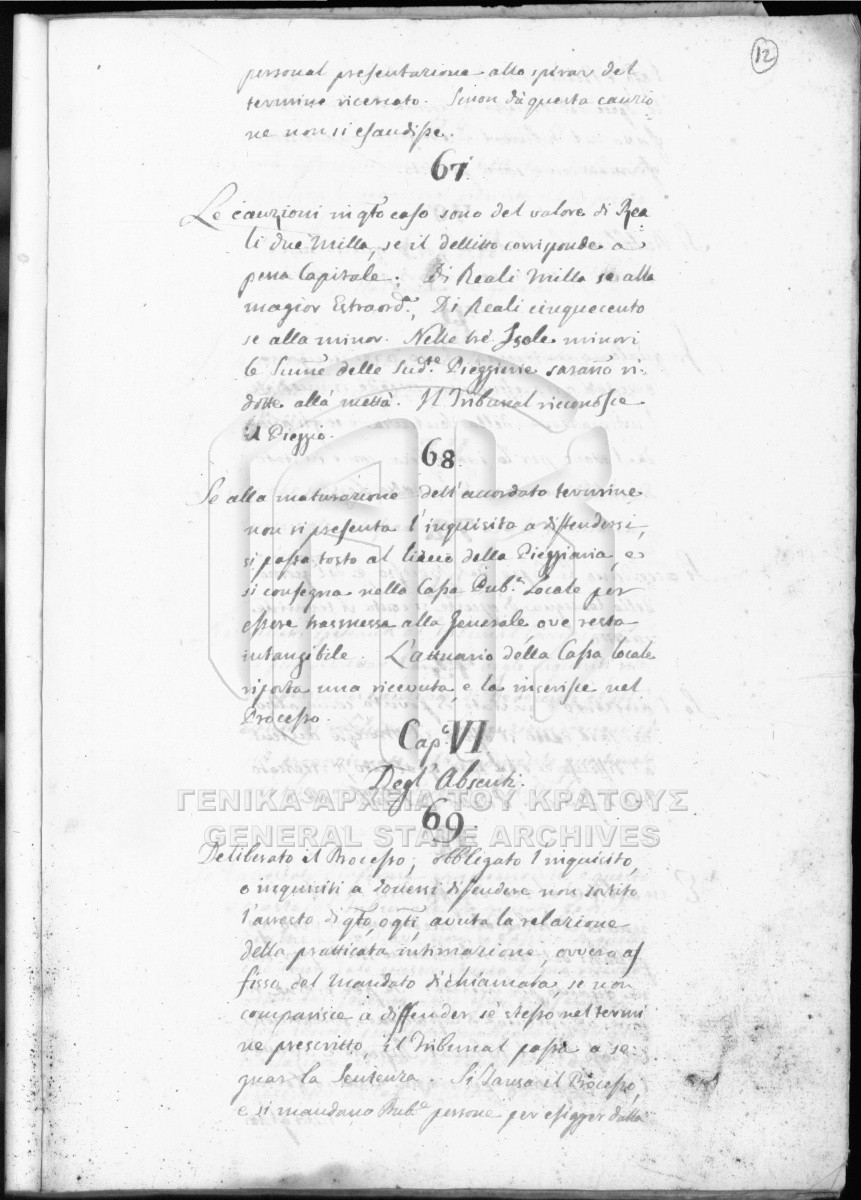 12
personal presentazione allo spirar del
termine ricercato. Senon dà questa cauzio-
ne non si esaudisse.
67
Le cauzioni in qto caso sono del valore di Rea-
li due Milla, se il dellitto corrisponde a
pena Capitale; Di Reali Milla se alla
magior Estraord.a, Di Reali cinquecento
se alla minor. Nelle trè Isole minori
le Summe delle Sudte Pieggiarie saranno ri-
dotte alla mettà. Il Tribunal riconosce
il Pieggio.
68
Se alla maturazione dell'accordato termine
non si presenta l'inquisito a diffendersi,
si passa tosto al licuo della Pieggiaria, e
si consegna nella Cassa Pub.a Locale per
essere trasmessa alla Generale ove resta
intangibile. L'attuario della Cassa locale
riporta una ricevuta, e la inserisce nel
Processo.
Cap.o VI
Degl'Absenti.
69
Deliberato il Processo, obbligato l'inquisito,
o inquisiti a doversi difendere non sortito
l'arresto di qto, o qti, avuta la relazione
della pratticata intimazione, ovvero af
fissa del Mandato di chiamata, se non
comparisce a diffender sè stesso nel termi
ne prescritto, il Tribunal passa a se-
gnar la Sentenza. Si Tansa il Processo,
e si mandano Pub.e persone per esigger dalla
ΓΕΝΙΚΑ ΑΡΧΕΙΑ ΤΟΥ ΚΡΑΤΟΥΣ
GENERAL STATE ARCHIVES